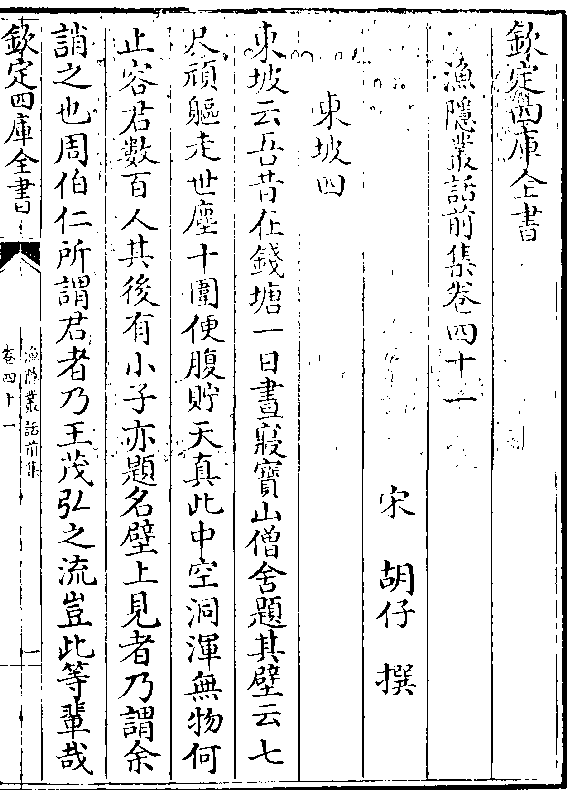 欽定四庫全書
漁隱叢話前集卷四十一
宋 胡仔 撰
東坡四
東坡云吾昔在錢塘一日晝寢寶山僧舍題其壁云七
尺頑軀走世塵十圍便腹貯天真此中空洞渾無物何
止容君數百人其後有小子亦題名壁上見者乃謂余
誚之也周伯仁所謂君者乃王茂弘之流豈此等輩哉
欽定四庫全書
漁隱叢話前集
卷四十一
一